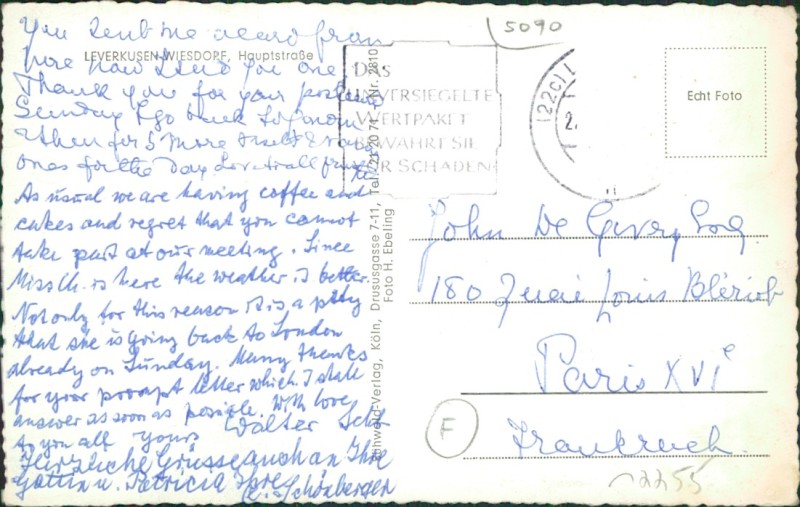 You sent me a card from
here now I send you one
Thank you for your
Sunday I go back to
then for 5 more
ones for the Day Love to all from
As usual we are having coffee and
cakes and regret that you cannot
take part at our meeting. Since
Miss Ch. is here the weather is better.
Not only for this reason it is a pitty
that she is going back to London
already on Sunday. Many thanks
for your prompt letter which I shall
answer as soon as possible. With love
to you all yours Walter
Herzliche Grüsse auch an Ihre
Gattin u. Patricia Ihre
Schönberger
LEVERKUSEN-WIESDORF, Hauptstraße
Verlag, Köln, Drususgasse 7-11, Tel. 21 20 71
Foto H. Ebeling
5090
DAS
UNVERSIEGELTE
WERTPAKET
BEWAHRT SIE
VOR SCHADEN
(22c)
Echt Foto
John De Gerey Esq
180 Quai Louis Blériot
Paris XVIe
F
Frankreich
2255